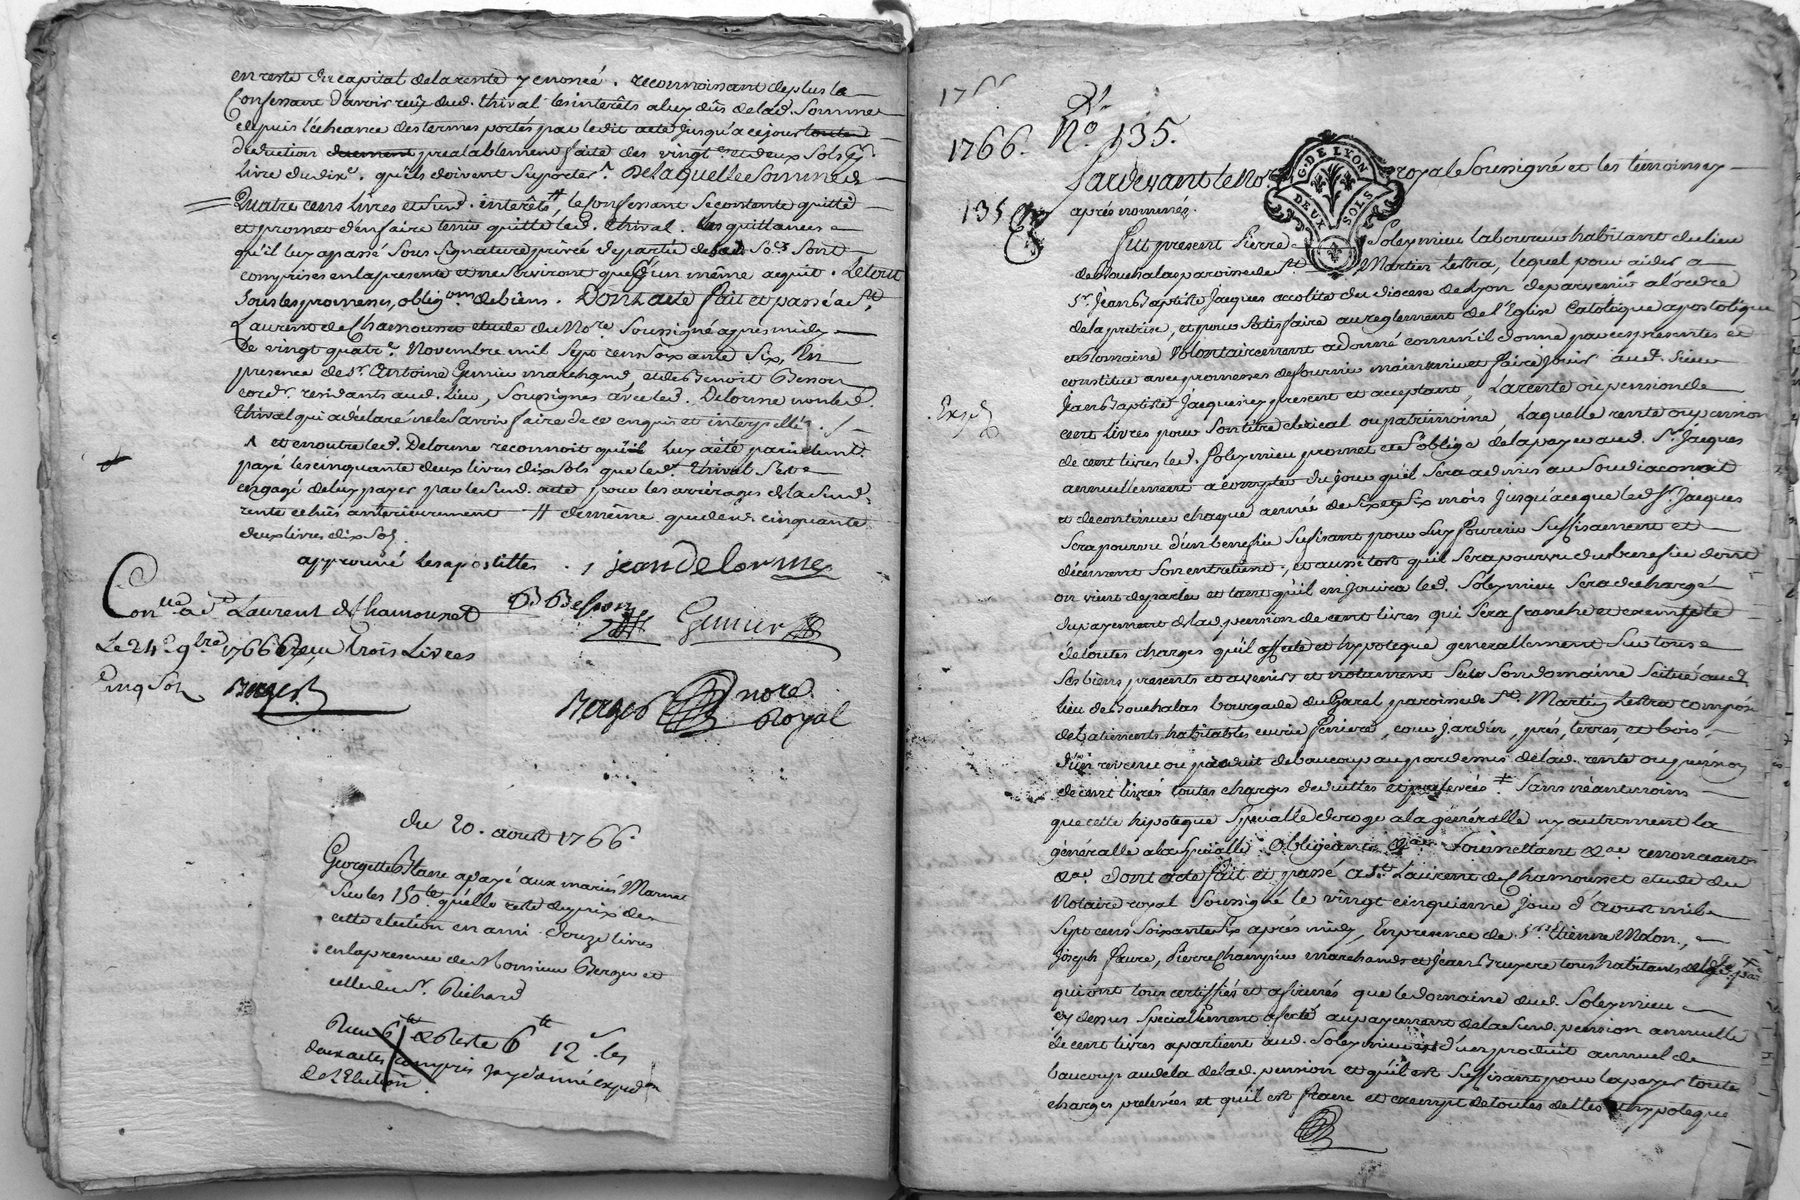 en reste du capital de la rente y enoncé. reconnoissant de plus le
Confessant d'avoir reçû dud. thival les interêts a luy dûs de lad. Somme
depuis l'écheance des termes portés par le dit acte jusqu'a ce jour
deduction prealablement faite des vingt et deux Sols
Livre du dix.e qu'ils doivent suporter. De laquelle Somme de
Quatre cens Livres et Susd. interêts # le Confessant Se contente quitte
et promet d'en faire tenir quitte led. thival. les quittances
qu'il luy a passé Sous Signature privée de partie de lad. So.e Sont
comprises en la presente et ne Serviront que d'un même acquit. Le tout
Sous les promesses, oblig.ons de biens. Dont acte fait et passé a St
Laurent de Chamousset etude du No.re Soussigné apres midy
Le vingt quatr.e Novembre mil Sept cens Soixante Six, En
presence de Sr. Antoine Gunier marchand et de Benoit Besson
cord.r residants aud. Lieu, Soussignés avec led. Delorme non led.
thival qui a declaré ne le Savoir faire de ce enquis et interpellé.
et en outre led. Delorme reconnoit qu'il luy a été
payé les cinquante deux livres dix Sols que led. thival S'est
engagé de luy payer par le Susd. acte, pour les arrérages de la Susd.
rente echûs anterieurement # de même que desd. cinquante
deux livres dix Sols.
approuvé les apostilles. jean delorme
B Besson
Gunier
Con.llé a St Laurent de Chamousset
Le 24e 9bre 1766 Reçu trois Livres
cinq Sols Berger
Berger nore.
Royal
du 20. aoust 1766.
Georgette Blanc a payé aux mariés Marnet
Sur les 150 lt qu'elle reste du prix de
cette élection en ami douze livres
en la presence de Monsieur Berger et
celle du Sr. Richard
Reçu 6 lt & Reste 6 lt 12 s. les
deux actes compris
de l'Election
1766
1766. No. 135.
G. DE LYON
DEUX SOLS
Pardevant le No.re royal Soussigné et les témoins cy
135
après nommés.
Fut present Pierre Soleymieu laboureur habitant du lieu
de Bouchalas paroisse de St Martin Lestra, lequel pour aider a
Sr. Jean Baptiste Jacques accolite du diocese de Lyon de parvenir a l'ordre
de la prétrise, et pour Satisfaire au reglement de l'Eglise Catolique apostolique
et Romaine Volontairement a donné comme il donne par ces presentes et
constitue avec promesses de fournir maintenir et faire Jouir aud. Sieur
Jean Baptiste Jacques cy present et acceptant, La rente ou pension de
Exp.é
cent livres pour Son titre clerical ou patrimoine Laquelle rente ou pension
de cent livres led. Soleymieu promet et S'oblige de la payer aud. Sr. Jacques
annuellement a compter du jour qu'il Sera admis au Soudiaconat
et de continuer chaque année de Six en Six mois Jusqu'a ce que led. Sr. Jacques
Sera pourvu d'un benefice Sufisant pour Luy fournir Suffisament et
décement Son entretient, et aussitost qu'il Sera pourvu du benefice dont
on vient de parler et tant qu'il en Jouira led. Soleymieu Sera dechargé
du payement de lad. pension de cent livres qui Sera franche et exempte
de toutes charges qu'il affecte et hypoteque generallement Sur tous
Ses biens presents et avenirs et notament Sur Son domaine Scitué aud.
lieu de Bouchalas bourgade du Garel paroisse de St. Martin Lestra composé
de batiments habitables curie feniere, cour jardin, prés, terres, et bois,
d'un revenu ou produit de beaucoup au pardessus de lad. rente ou pension
de cent livres toutes charges deduittes et prelevées # Sans néantmoins
que cette hipoteque Spéciálle deroge a la générálle ny autrement la
générálle a la Spéciálle Obligeants &ae Soumettant &ae renonceant
&ae dont acte fait et passé a St. Laurent de Chamousset etude du
Notaire royal Soussigné le vingt cinquieme Jour d'Aoust mil
Sept cens Soixante Six après midy, En presence de Sr. Etienne Molon,
Joseph Favre, Pierre Champier marchands et Jean Bruyere tous habitants
qui ont tous certiffiés et afirmés que le domaine dud. Soleymieu
cy dessus Speciallement afecté au payement de la Susd. pension annuelle
de cent livres apartient aud. Soleymieu est d'un produit annuel de
baucoup audela de lad. pension et qu'il est Suffisant pour la payer toute
charges prelevées et qu'il est franc et exempt de toutes dettes et hypoteque